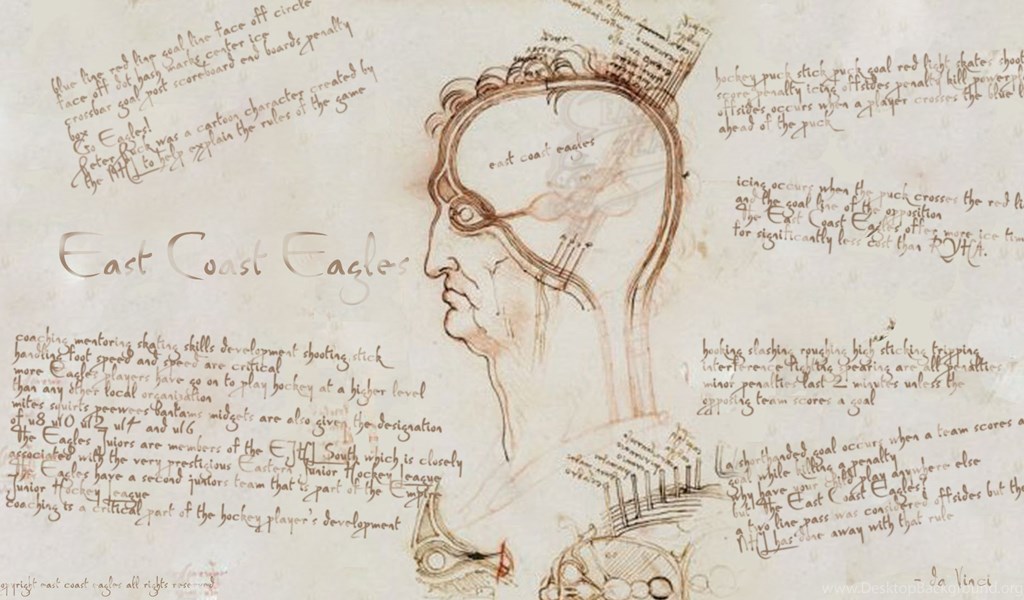 blue line red line goal line face off circle
face off dot hash marks center ice
crossbar goal post scoreboard end boards penalty
box
Go Eagles!
Peter Puck was a cartoon character created by
the NHL to help explain the rules of the game
East Coast Eagles
coaching mentoring skating skills development shooting stick
handling foot speed and speed are critical
more Eagles players have go on to play hockey at a higher level
than any other local organization
mites squirts peewees bantams midgets are also given the designation
of u8 u10 u12 u14 and u16
The Eagles Juiors are members of the EJHL South which is closely
associated with the very prestigious Eastern Junior Hockey league
The Eagles have a second juniors team that is part of the Empire
Junior Hockey league
coaching is a critical part of the hockey player's development
opyright east coast eagles all rights reserved
east coast eagles
hockey puck stick puck goal red light skates shoot
score penalty icing offsides penalty kill powerpl
offsides occurs when a player crosses the blue li
ahead of the puck
icing occurs when the puck crosses the red li
and the goal line of the opposition
The East Coast Eagles offer more ice tim
for significantly less cost than RYHA.
hooking slashing roughing high sticking tripping
interference fighting spearing are all penalties
minor penalties last 2 minutes unless the
opposing team scores a goal
a shorthanded goal occurs when a team scores a
goal while killing a penalty
why have your child play anywhere else
call The East Coast Eagles!
a two line pass was considered offsides but th
NHL has done away with that rule
- da Vinci
www.DesktopBackground.org